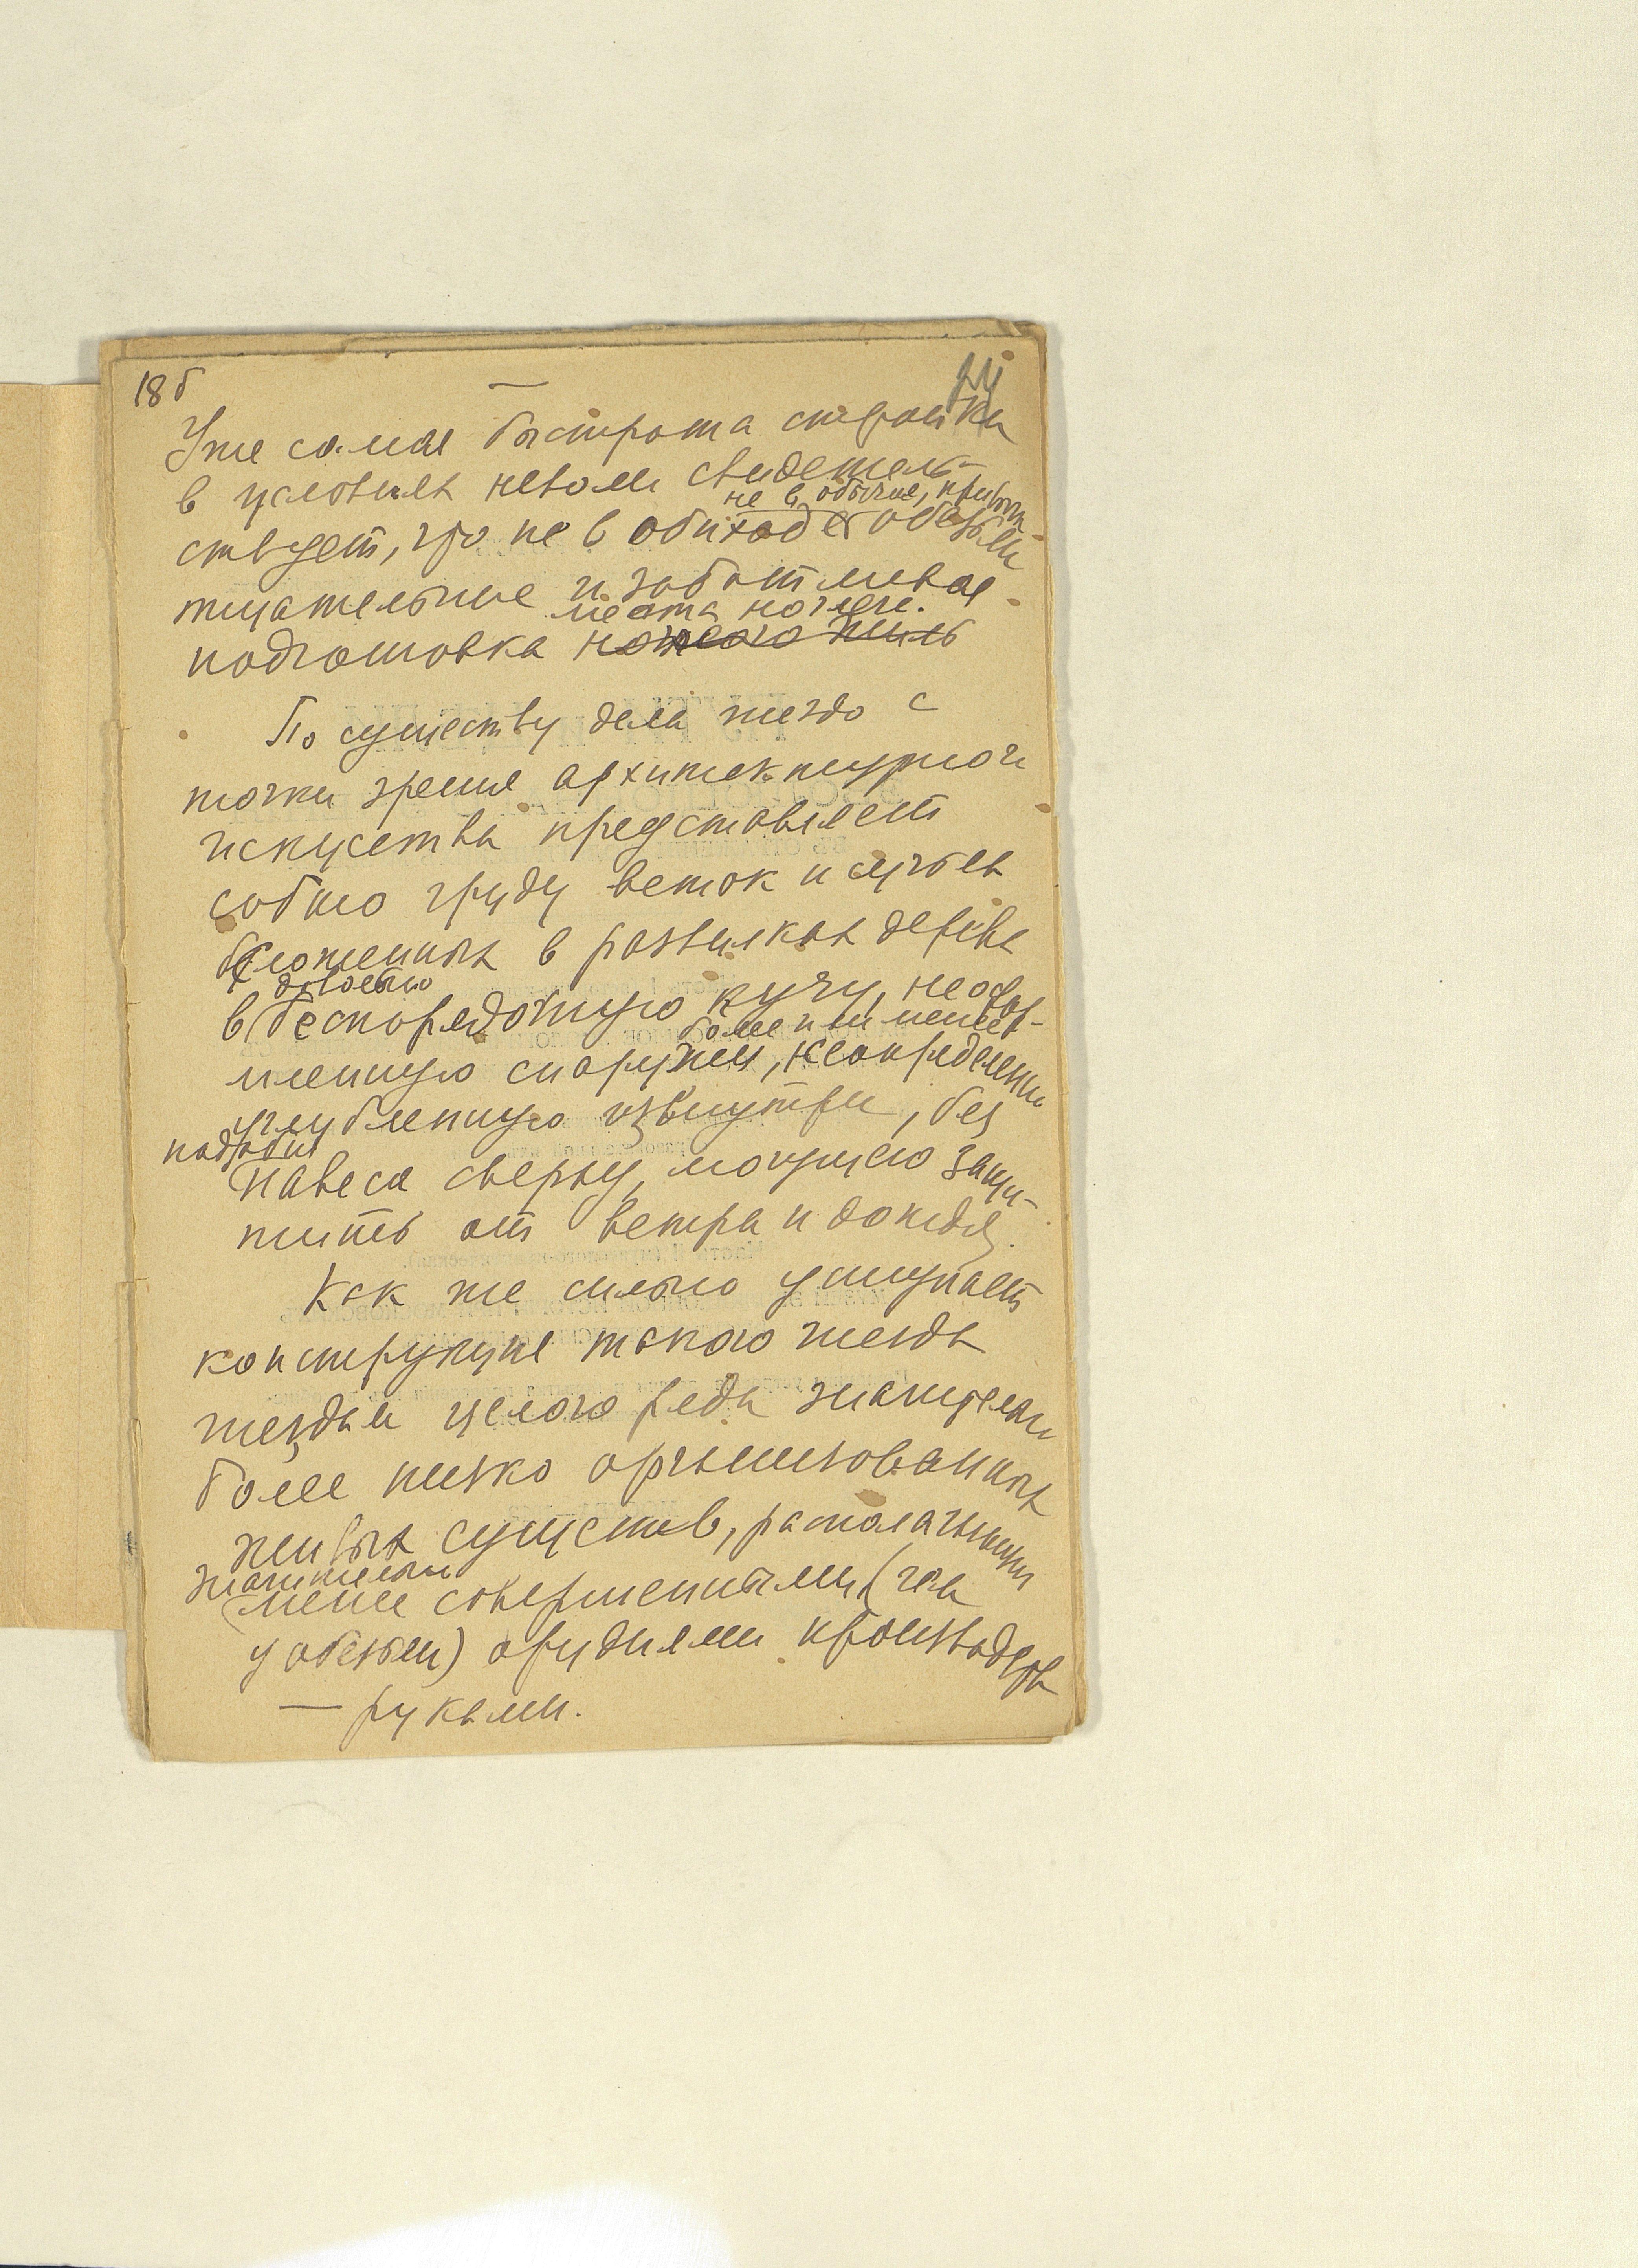 18б
Уже самая быстрота стройки
в условиях неволи свидетель-
не в обычае, привычк
ствует, что не в обиходе обезьян
тщательная и заботливая
места ночлега.
подготовка
По существу дела гнездо с
точки зрения архитектурного
искусства представляет
собою груду веток и сучьев
сложенных в развилках дерева
довольно
в беспорядочную кучу, неоформ-
более или менее
мленную снаружи, неопределенно
углубленную извнутри, без
подобия
навеса сверху, могущего защи-
тить от ветра и дождя.
Как же сильно уступает
конструкция такого гнезда
гнездам целого ряда значительно
более низко организованных
живых существ, располагающих
значительно
менее совершенными (чем
у обезьян) орудиями производства
— руками.